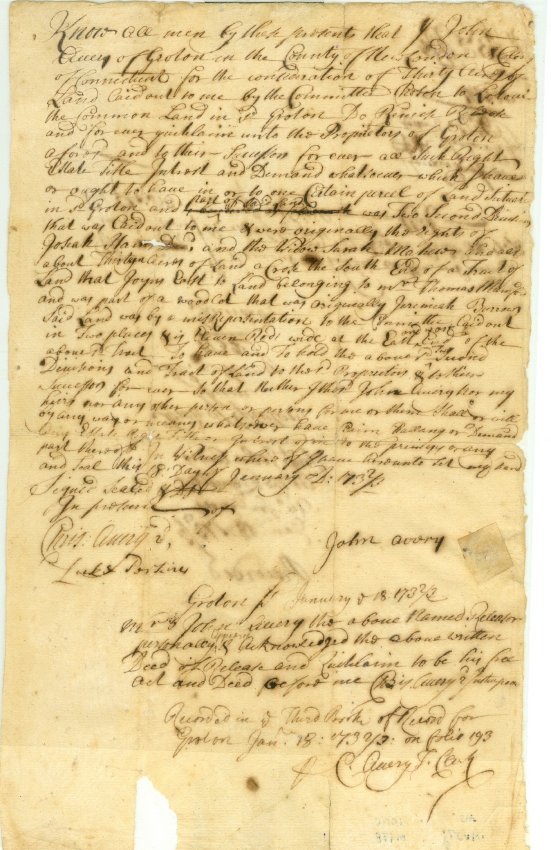 Know all men by these presents that I John
Avery of Groton in the County of New London & Colony
of Connecticut for the consideration of Thirty Acres of
Land Laid out to me by the Committee Chosen to
the Common Land in sd Groton Do Remise Release
and for ever quitclaim unto the Proprietors of Groton
aforesd and to their Sucessors for ever all Such Right
Estate Title Intrest and Demand whatsoever which I have
or ought to have in or to one Certain parcel of Land Situate
in sd Groton and was Two Second Divisions
that was Laid out to me & were originally the right of
Josiah and the Widow Sarah
about Thirty Acres of Land a Cross the South End of a tract of
Land that Joyns East to Land belonging to mr Thomas
and was part of a woodlot that was originally Jeremiah Burrows
Said Land was by a missRepresentation to the Committee Laid out
in Two places Eleven Rods wide at the East End of the
above sd Tract To have and To hold the above sd Two Second
Divisions and Tract of Land to the sd Proprietors & to their
Sucessors for ever so that Neither I the sd John Avery nor my
heirs nor any other person or persons for me or them Shall or will
by any way or means whatsoever have Claim Challenge or Demand
any Estate Right Title or Interest of in or to the premises or any
part thereof In Witness whereof I have hereunto Set my hand
and Seal this 8 Day of January 1732/3
Signed Sealed &
In presence of
Chris: Avery 2d,
Luke Perkins
John Avery
Groton sc January ye 18 1732/3
Mr John Avery the above Named Releasor
personally & Acknowledged the above written
Deed of Release and Quitclaim to be his free
act and Deed before me Chris Avery
Recorded in ye Third Book of Record for
Groton Janr 18: 1732/3: on Folio 193
C. Avery